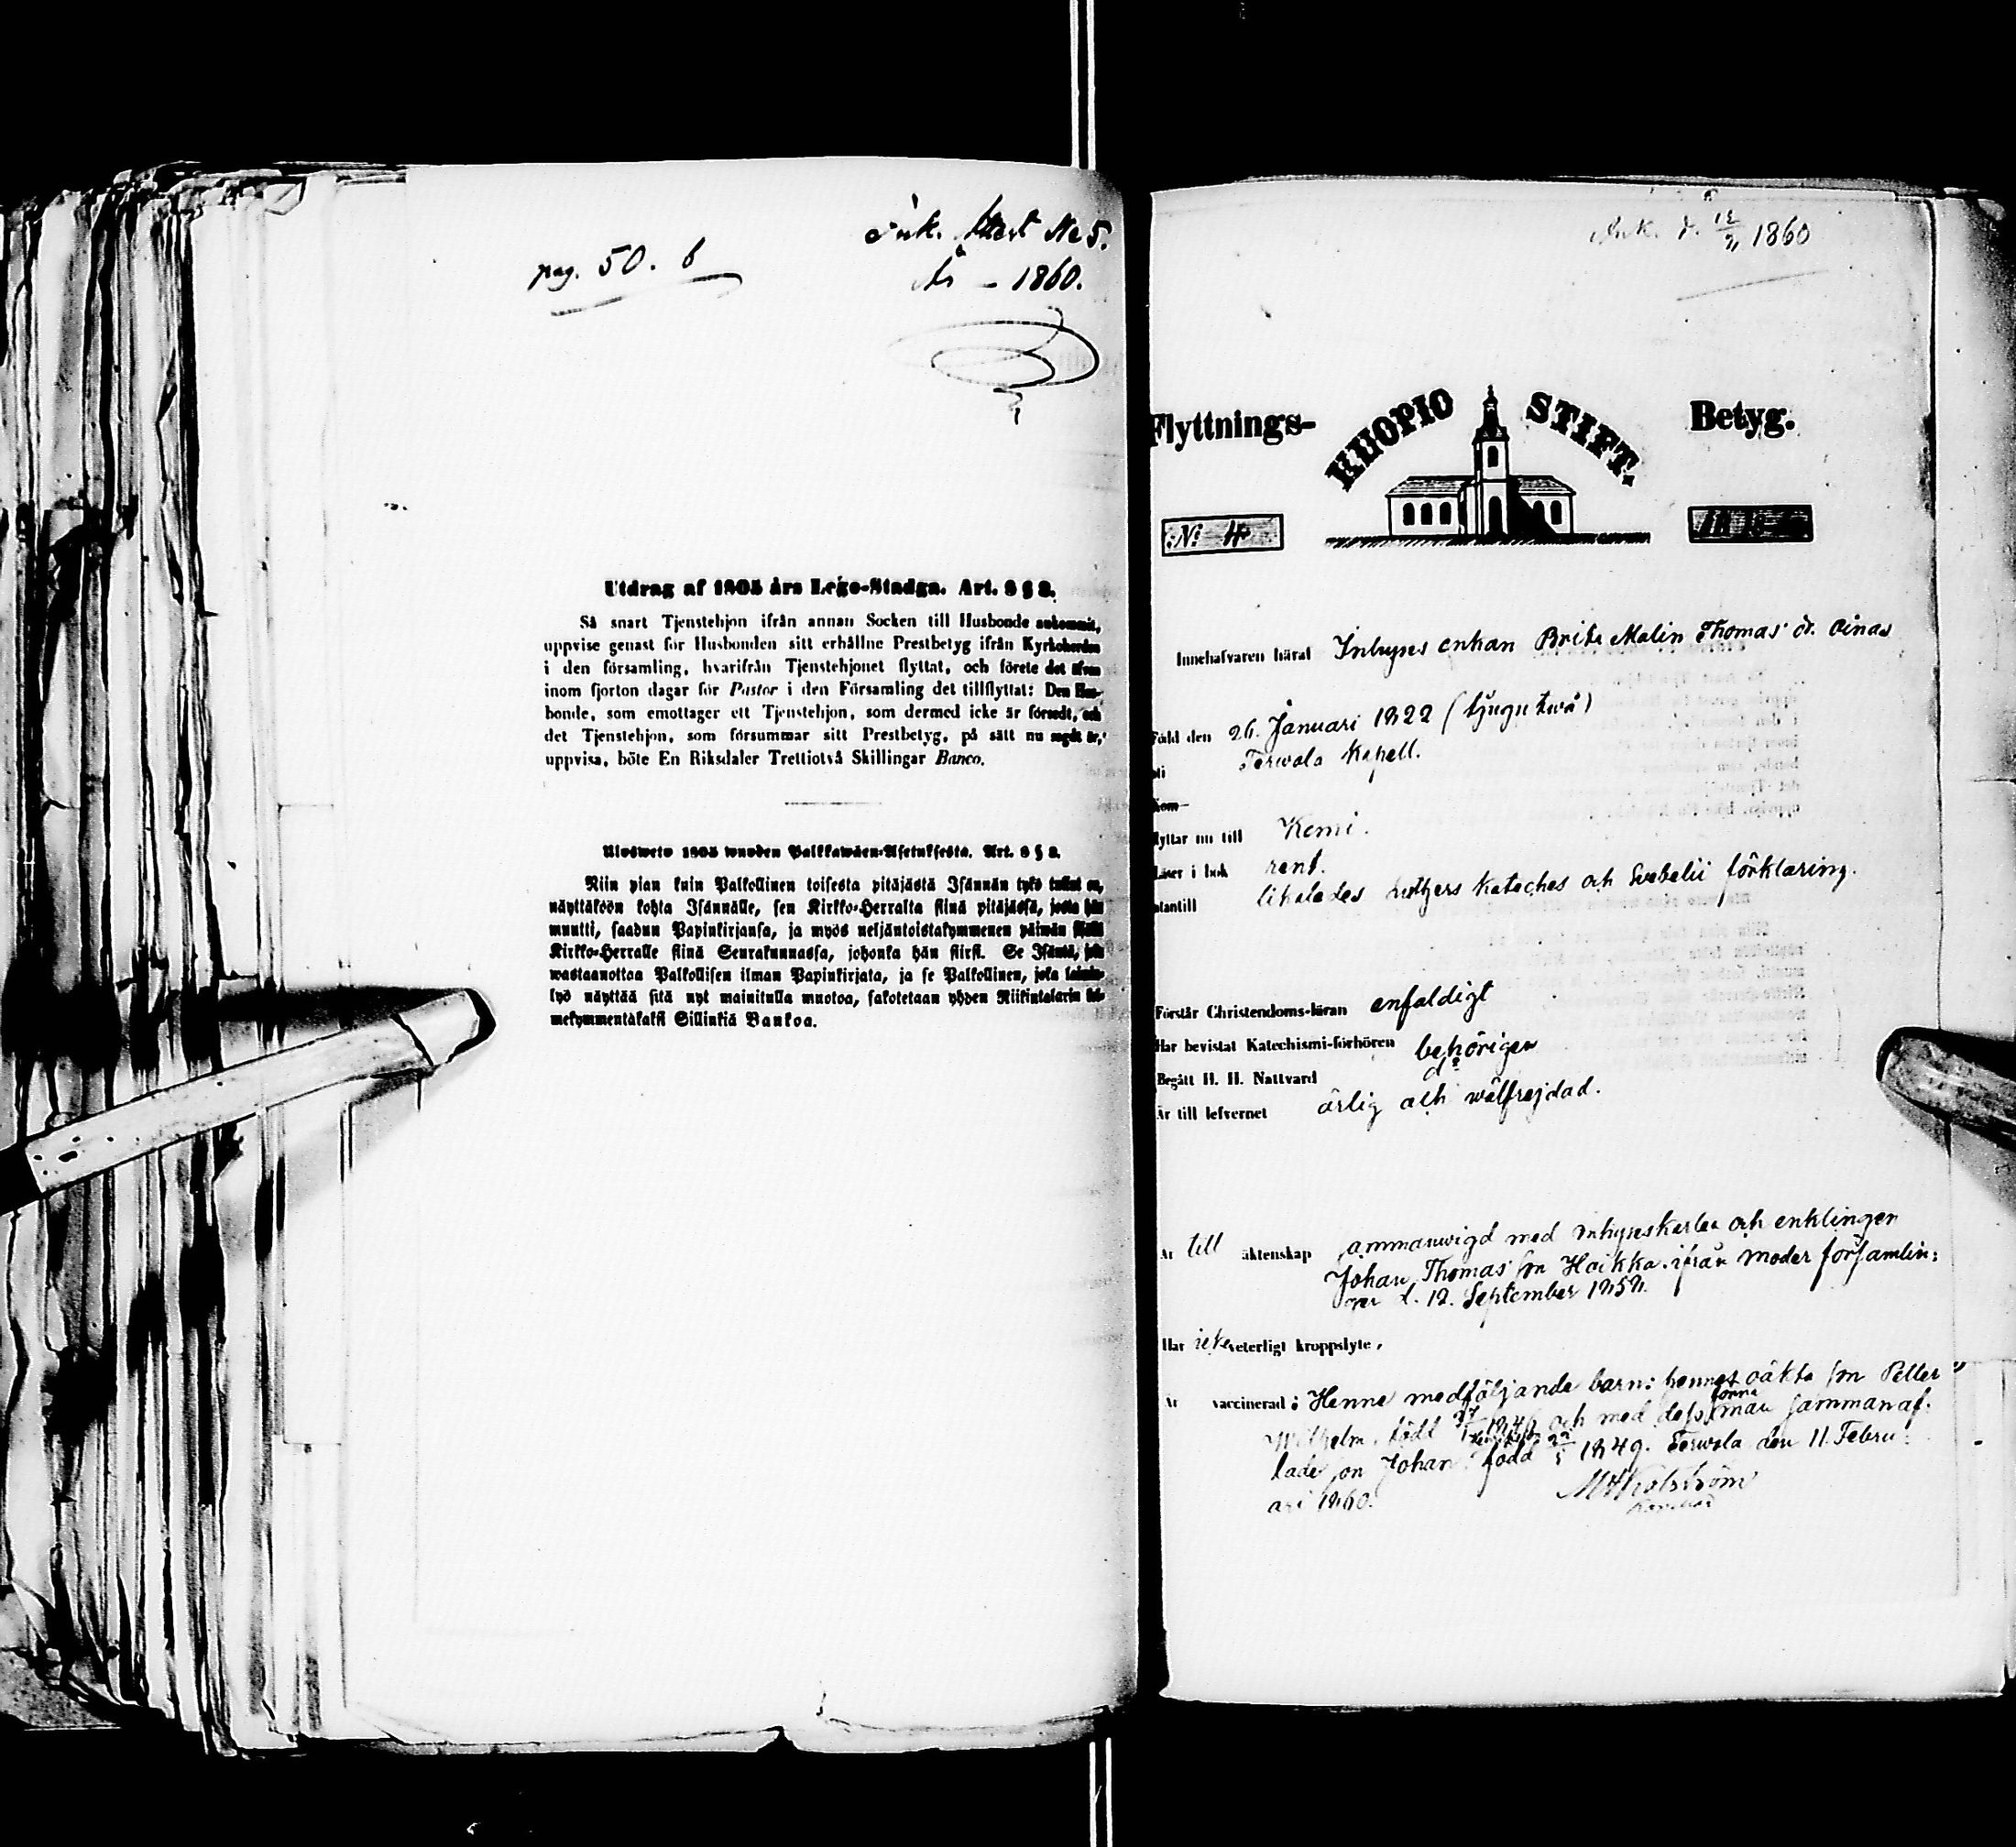 pag. 50. b
Ink. Attest No 5.
År - 1860.
Utdrag af 1805 års Lego-Stadga. Art. 8 § 3.
Så snart Tjenstehjon ifrån annan Socken till Husbonde ankommit,
uppvise genast för Husbonden sitt erhållne Prestbetyg ifrån Kyrkoherden
i den församling, hvarifrån Tjenstehjonet flyttat, och förete det äfven
inom fjorton dagar för Pastor i den Församling det tillflyttat: Den Hus-
bonde, som emottager ett Tjenstehjon, som dermed icke är försedt, och
det Tjenstehjon, som försummar sitt Prestbetyg, på sätt nu sagdt är,
uppvisa, böte En Riksdaler Trettiotvå Skillingar Banco.
Ulosweto 1805 wuoden Palkkawäen-Asetuksesta. Art. 8 § 3.
Niin pian kuin Palkollinen toisesta pitäjästä Isännän tykö tullut on,
näyttäköön kohta Isännälle, sen Kirkko-Herralta siinä pitäjässä, josta hän
muutti, saadun Papinkirjansa, ja myös neljäntoistakymmenen päiwän sisällä
Kirkko-Herralle siinä Seurakunnassa, johonka hän siirsi. Se Isäntä, joka
wastaanottaa Palkollisen ilman Papinkirjata, ja se Palkollinen, joka laimin-
lyö näyttää sitä nyt mainitulla muotoa, sakotetaan yhden Riikintalarin kol-
mekymmentäkaksi Sillinkiä Bankoa.
Ink. d. 12/2 1860
Flyttnings- KUOPIO STIFT. Betyg.
No 4
Innehafvaren häraf Inhyses enkan Brita Malin Thomas dr. Oinas
Född den 26. Januari 1822 (tjugutwå)
uti Terwola Kapell.
Kom
flyttar nu till Kemi.
Läser i bok rent.
utantill likaledes Luthers Kateches och Svebelii förklaring.
Förstår Christendoms-läran enfaldigt
Har bevistat Katechismi-förhören behörigen
Begått H. H. Nattvard do
Är till lefvernet ärlig och wälfrejdad.
Är till äktenskap sammanwigd med inhyseskarlen och enklingen
Johan Thomas son Haikka ifrån moder församlin:
gen d. 12. September 1858.
Har icke veterligt kroppslyte.
Är vaccinerad: Henne medföljande barn: hennes oäkta son Petter
Wilhelm, född 1846 och med dess förra man sammanaf-
lade son Johan född 1849. Terwola den 11. Febru-
ari 1860.